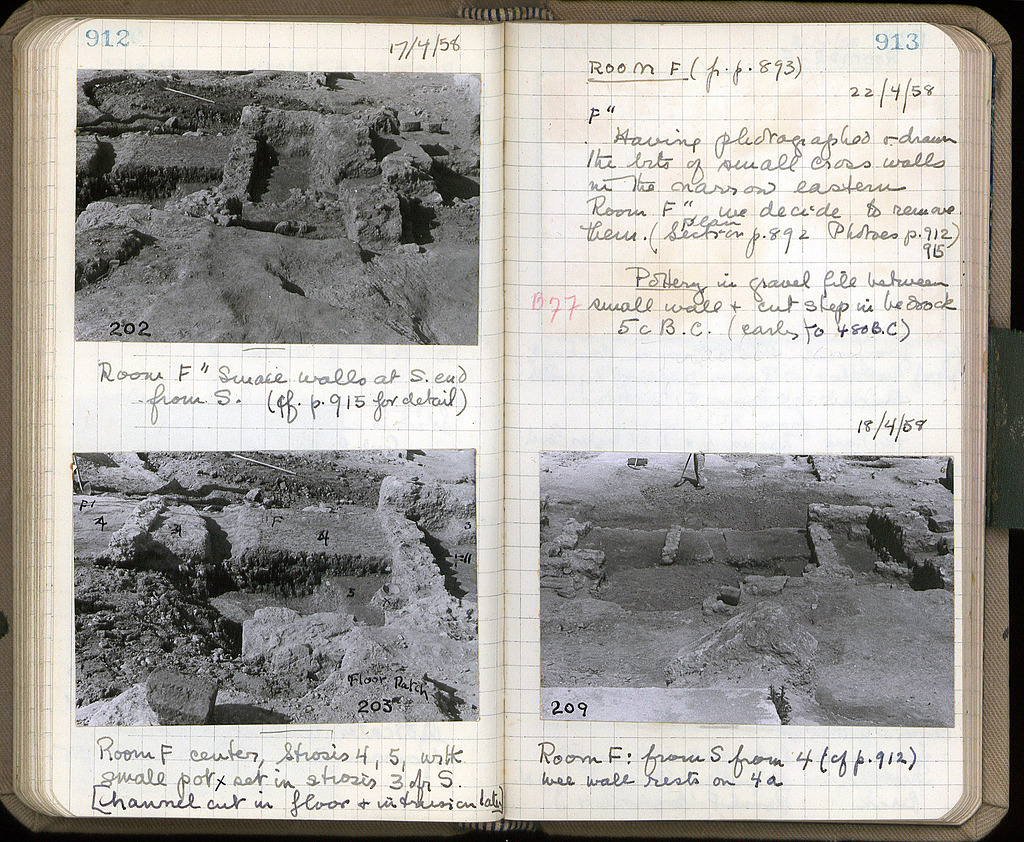 912
17/4/58
202
Room F" Small walls at S. end
from S. (cf. p. 915 for detail)
F'
4
4
F
4
3
5
x
Floor Patch
203
Room F center, Strosis 4, 5, with
small pot x set in strosis 3 fr S.
[channel cut in floor + intrusion later]
913
ROOM F (fr. p. 893)
22/4/58
F"
Having photographed + drawn
the bits of small cross walls
in the narrow eastern
Room F" we decide to remove
plan
them. (Section p. 892 Photoes p. 912)
915
Pottery in gravel fill between
B77 small wall + cut step in bedrock
5c B.C. (early to 480 B.C)
18/4/58
209
Room F: from S from 4 (cf p. 912)
wee wall rests on 4a